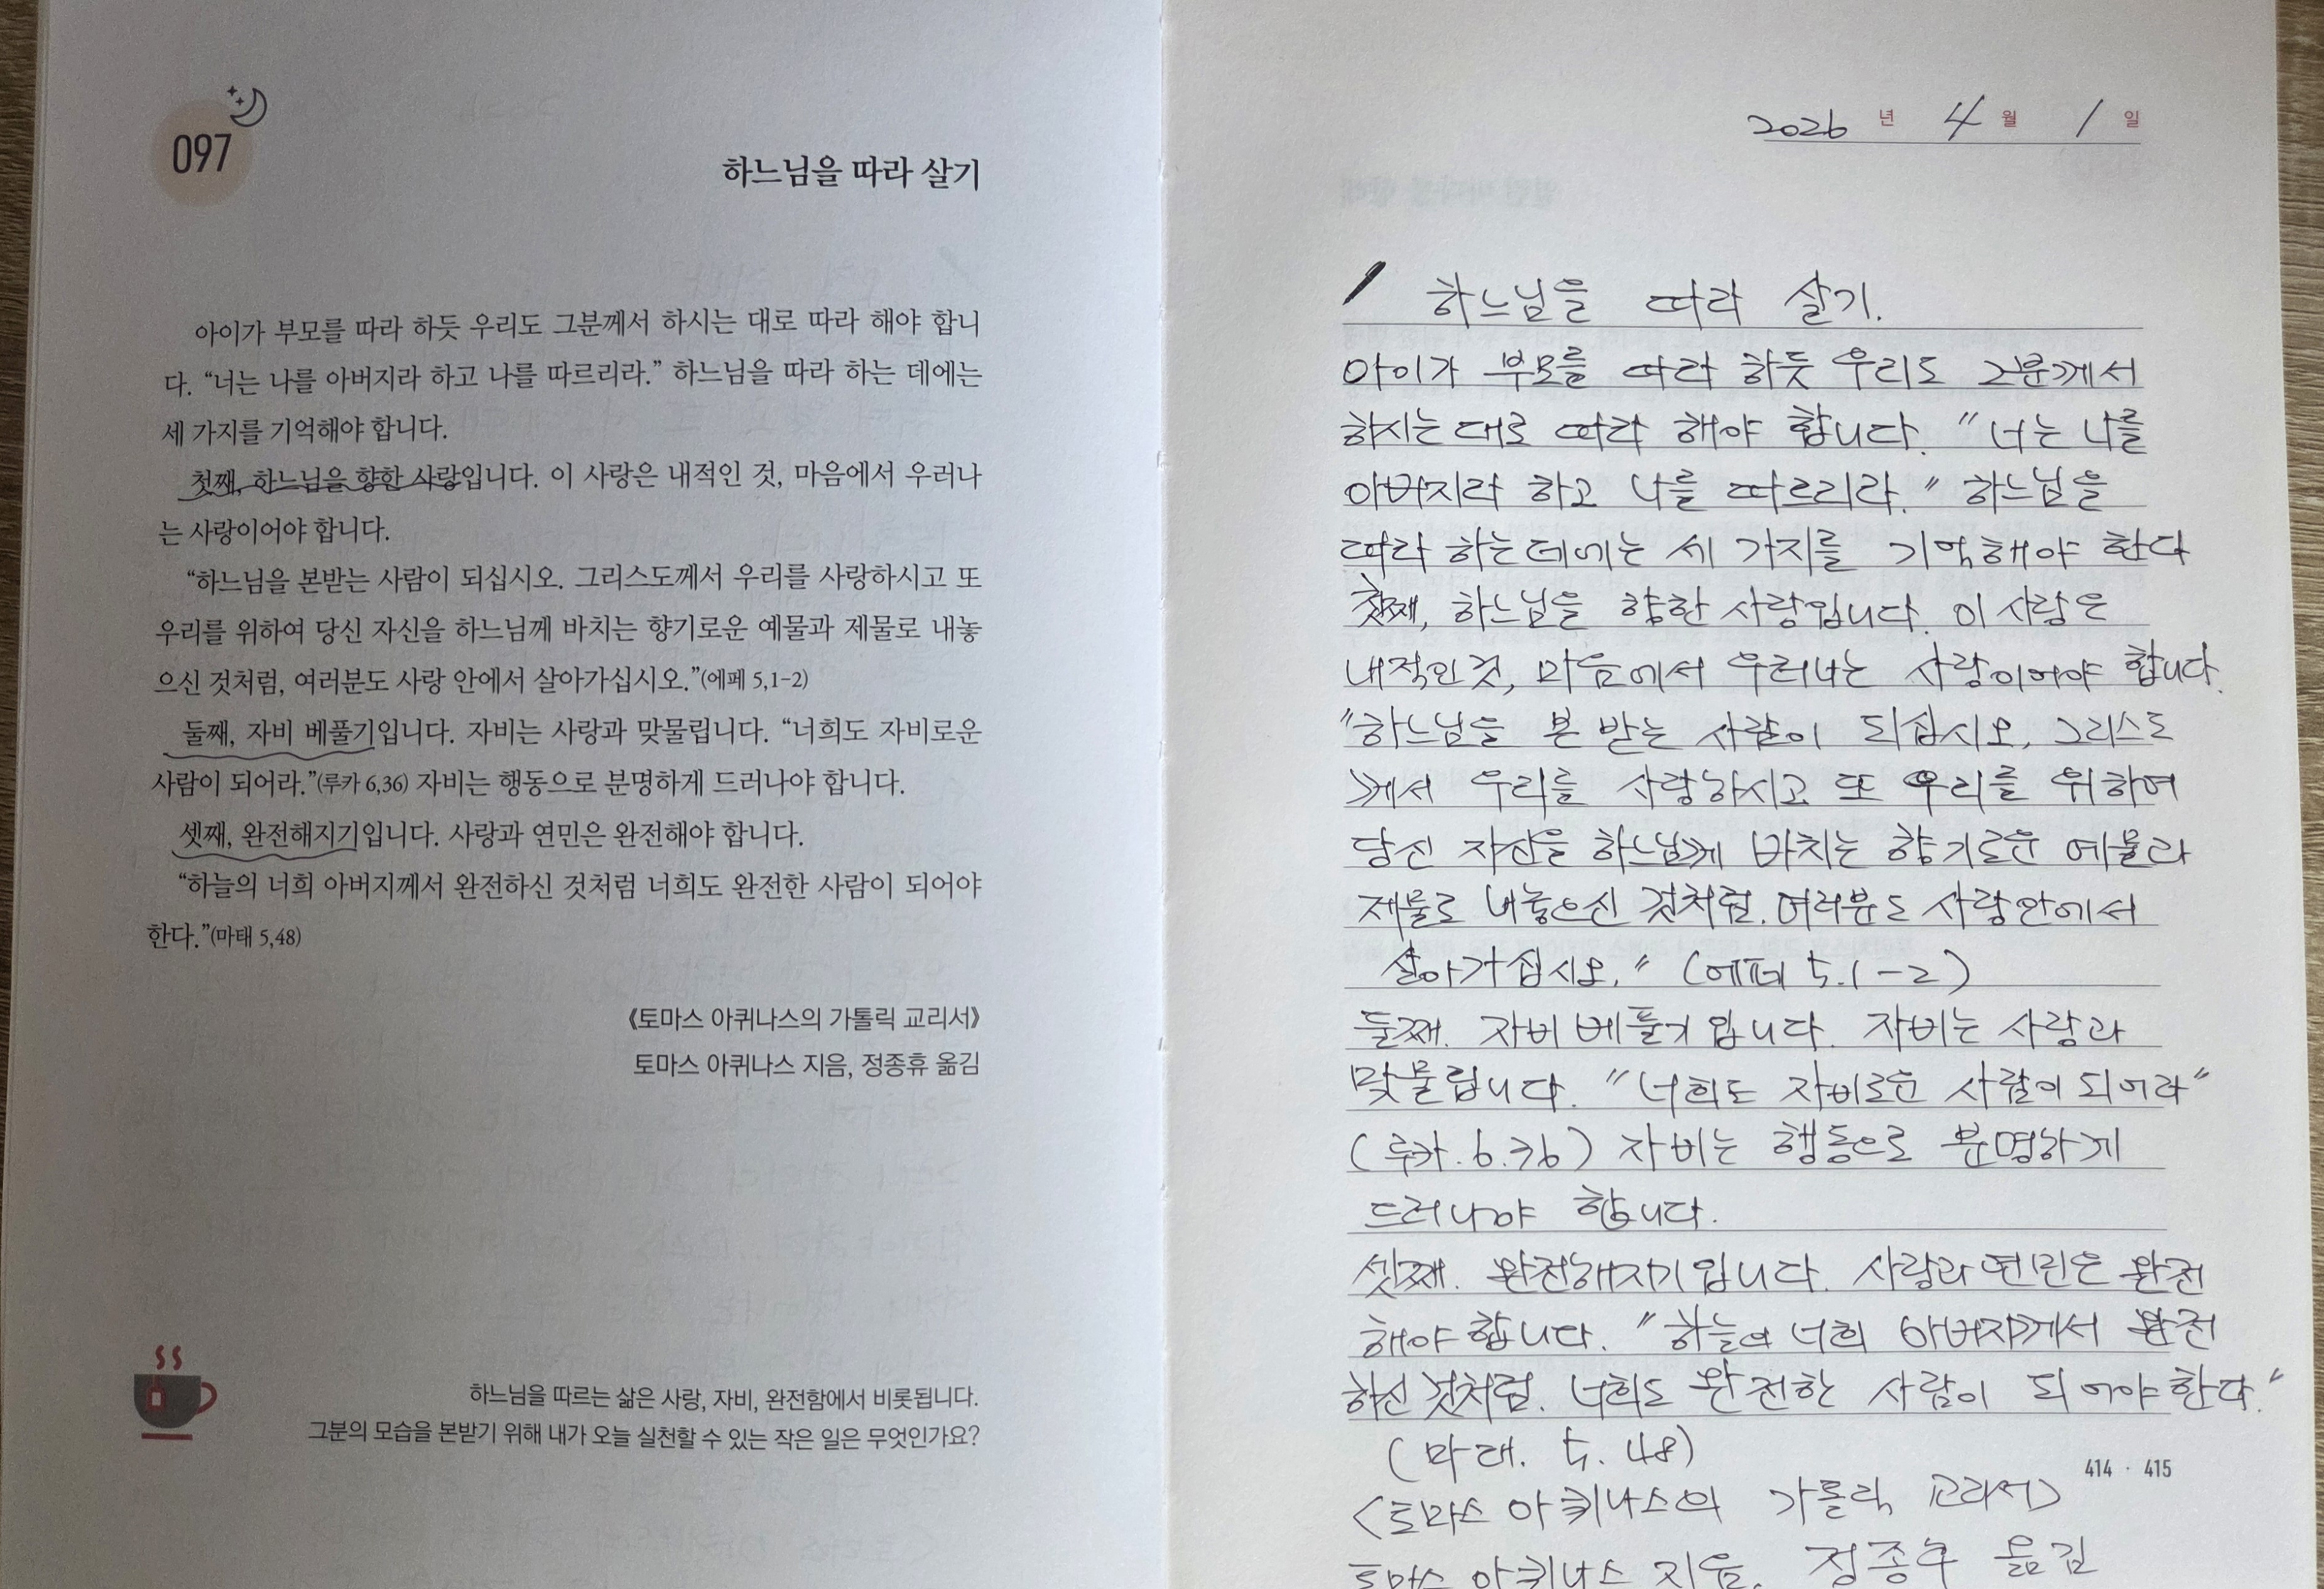 097
하느님을 따라 살기
아이가 부모를 따라 하듯 우리도 그분께서 하시는 대로 따라 해야 합니
다. “너는 나를 아버지라 하고 나를 따르리라.” 하느님을 따라 하는 데에는
세 가지를 기억해야 합니다.
첫째, 하느님을 향한 사랑입니다. 이 사랑은 내적인 것, 마음에서 우러나
는 사랑이어야 합니다.
“하느님을 본받는 사람이 되십시오. 그리스도께서 우리를 사랑하시고 또
우리를 위하여 당신 자신을 하느님께 바치는 향기로운 예물과 제물로 내놓
으신 것처럼, 여러분도 사랑 안에서 살아가십시오.”(에페 5,1-2)
둘째, 자비 베풀기입니다. 자비는 사랑과 맞물립니다. “너희도 자비로운
사람이 되어라.”(루카 6,36) 자비는 행동으로 분명하게 드러나야 합니다.
셋째, 완전해지기입니다. 사랑과 연민은 완전해야 합니다.
“하늘의 너희 아버지께서 완전하신 것처럼 너희도 완전한 사람이 되어야
한다.”(마태 5,48)
《토마스 아퀴나스의 가톨릭 교리서》
토마스 아퀴나스 지음, 정종휴 옮김
하느님을 따르는 삶은 사랑, 자비, 완전함에서 비롯됩니다.
그분의 모습을 본받기 위해 내가 오늘 실천할 수 있는 작은 일은 무엇인가요?
2026 년 4 월 1 일
하느님을 따라 살기.
아이가 부모를 따라 하듯 우리도 그분께서
하시는 대로 따라 해야 합니다. "너는 나를
아버지라 하고 나를 따르리라." 하느님을
따라 하는데에는 세 가지를 기억해야 한다
첫째, 하느님을 향한 사랑입니다. 이 사랑은
내적인 것, 마음에서 우러나는 사랑이어야 합니다.
"하느님을 본 받는 사람이 되십시오. 그리스도
께서 우리를 사랑하시고 또 우리를 위하여
당신 자신을 하느님께 바치는 향기로운 예물과
제물로 내놓으신 것처럼. 여러분도 사랑안에서
살아가십시오." (에페 5.1-2)
둘째. 자비 베풀기 입니다. 자비는 사랑과
맞물립니다. "너희도 자비로운 사람이 되어라"
(루카. 6.36) 자비는 행동으로 분명하게
드러나야 합니다.
셋째. 완전해지기 입니다. 사랑과 연민은 완전
해야 합니다. "하늘의 너희 아버지께서 완전
하신 것처럼. 너희도 완전한 사람이 되어야 한다."
(마태. 5. 48)
<토마스 아퀴나스의 가톨릭 교리서>
토마스 아퀴나스 지음. 정종휴 옮김
414 · 415